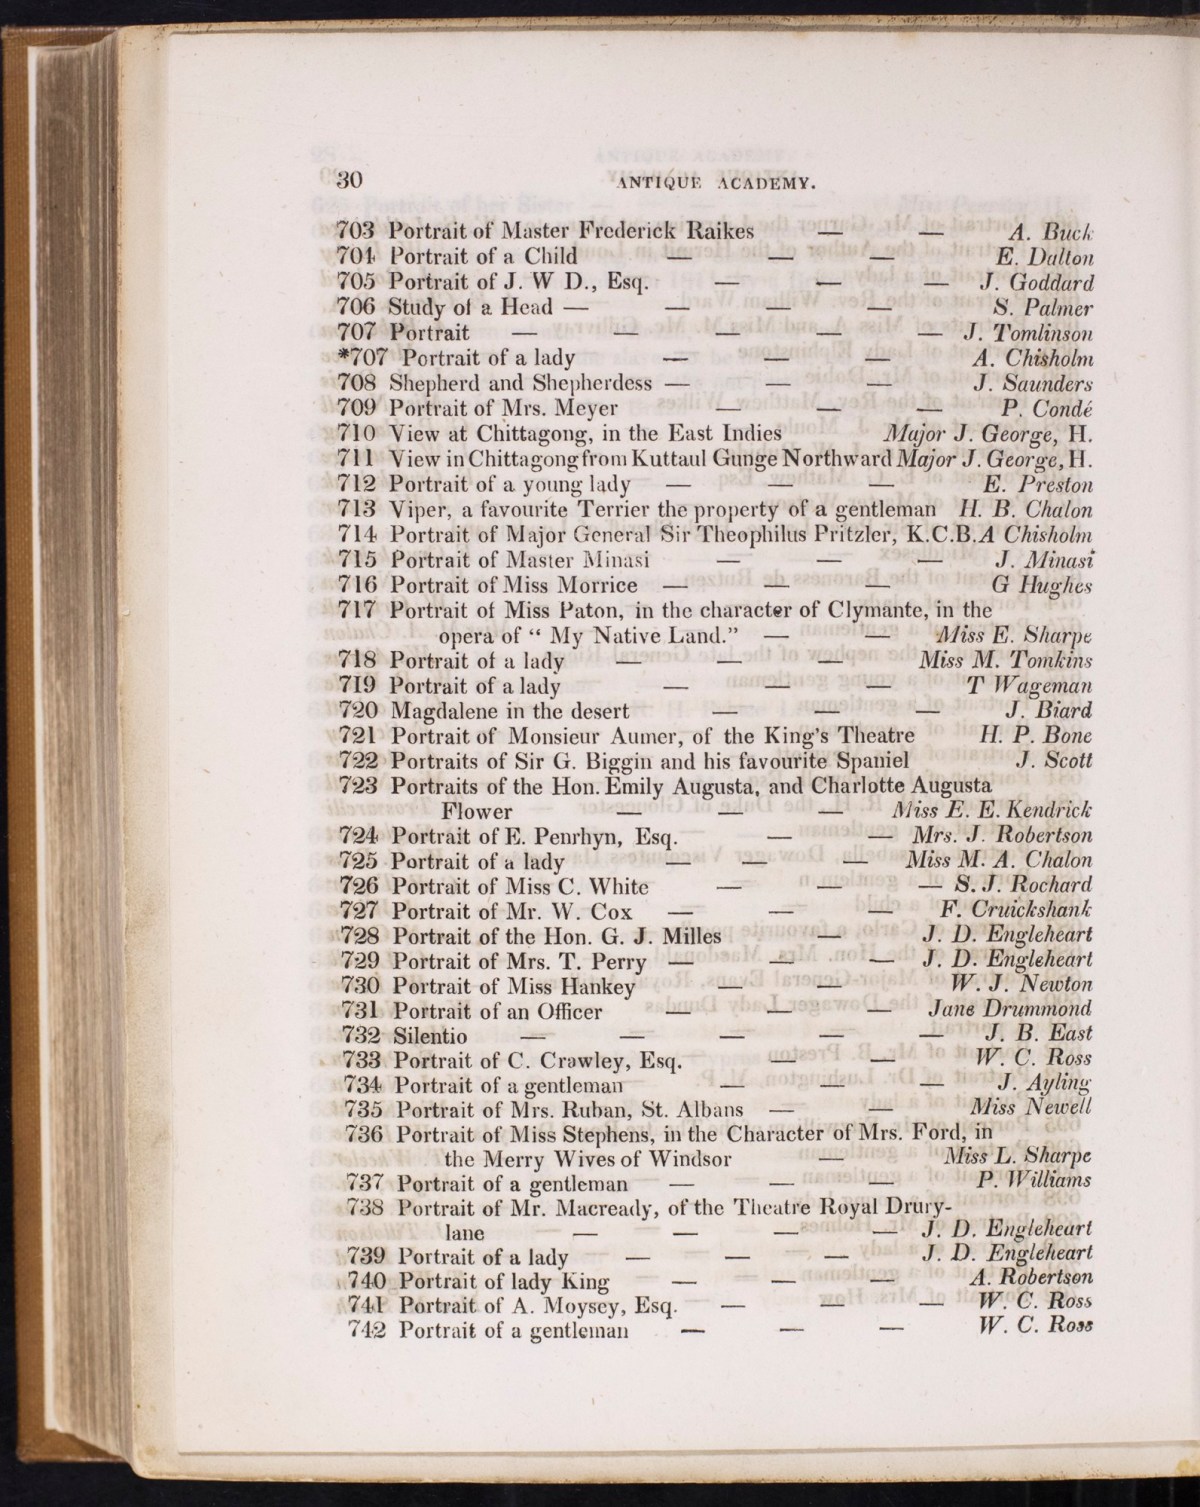 30 ANTIQUE ACADEMY.
703 Portrait of Master Frederick Raikes — — A. Buck
704 Portrait of a Child — — — E. Dalton
705 Portrait of J. W D., Esq. — — — J. Goddard
706 Study of a Head — — — — S. Palmer
707 Portrait — — — — — J. Tomlinson
*707 Portrait of a lady — — — A. Chisholm
708 Shepherd and Shepherdess — — — J. Saunders
709 Portrait of Mrs. Meyer — — — P. Condé
710 View at Chittagong, in the East Indies Major J. George, H.
711 View in Chittagong from Kuttaul Gunge Northward Major J. George, H.
712 Portrait of a young lady — — — E. Preston
713 Viper, a favourite Terrier the property of a gentleman H. B. Chalon
714 Portrait of Major General Sir Theophilus Pritzler, K.C.B. A Chisholm
715 Portrait of Master Minasi — — — J. Minasi
716 Portrait of Miss Morrice — — — G Hughes
717 Portrait of Miss Paton, in the character of Clymante, in the
opera of “ My Native Land.” — — Miss E. Sharpe
718 Portrait of a lady — — — Miss M. Tomkins
719 Portrait of a lady — — — T Wageman
720 Magdalene in the desert — — — J. Biard
721 Portrait of Monsieur Aumer, of the King's Theatre H. P. Bone
722 Portraits of Sir G. Biggin and his favourite Spaniel J. Scott
723 Portraits of the Hon. Emily Augusta, and Charlotte Augusta
Flower — — — Miss E. E. Kendrick
724 Portrait of E. Penrhyn, Esq. — — Mrs. J. Robertson
725 Portrait of a lady — — — Miss M. A. Chalon
726 Portrait of Miss C. White — — — S. J. Rochard
727 Portrait of Mr. W. Cox — — — F. Cruickshank
728 Portrait of the Hon. G. J. Milles — J. D. Engleheart
729 Portrait of Mrs. T. Perry — — — J. D. Engleheart
730 Portrait of Miss Hankey — — W. J. Newton
731 Portrait of an Officer — — — Jane Drummond
732 Silentio — — — — — J. B. East
733 Portrait of C. Crawley, Esq. — — W. C. Ross
734 Portrait of a gentleman — — — J. Ayling
735 Portrait of Mrs. Ruban, St. Albans — — Miss Newell
736 Portrait of Miss Stephens, in the Character of Mrs. Ford, in
the Merry Wives of Windsor — Miss L. Sharpe
737 Portrait of a gentleman — — — P. Williams
738 Portrait of Mr. Macready, of the Theatre Royal Drury-
lane — — — — J. D. Engleheart
739 Portrait of a lady — — — J. D. Engleheart
740 Portrait of lady King — — — A. Robertson
741 Portrait of A. Moysey, Esq. — — — W. C. Ross
742 Portrait of a gentleman — — — W. C. Ross